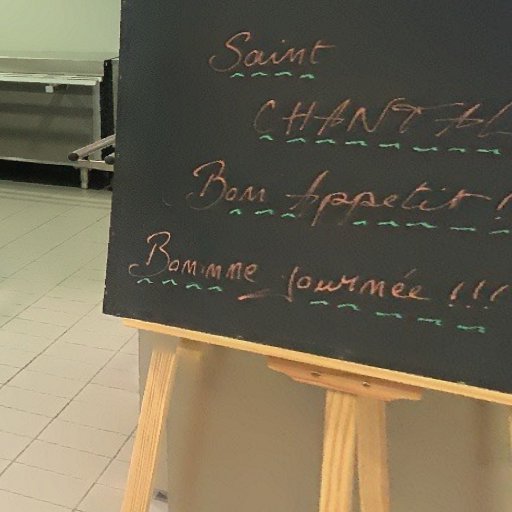 Saint
CHANTAL
Bon Appetit !
Bonnne Journée !!!